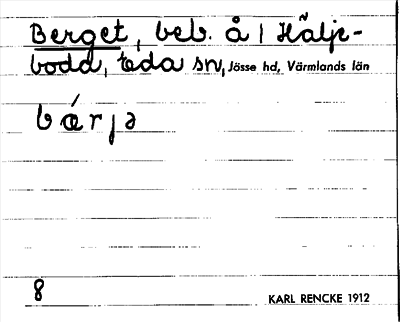 Berget, beb. å l Hälje-
bodd, Eda sn, Jösse hd, Värmlands län
bǽrjə
8
KARL RENCKE 1912